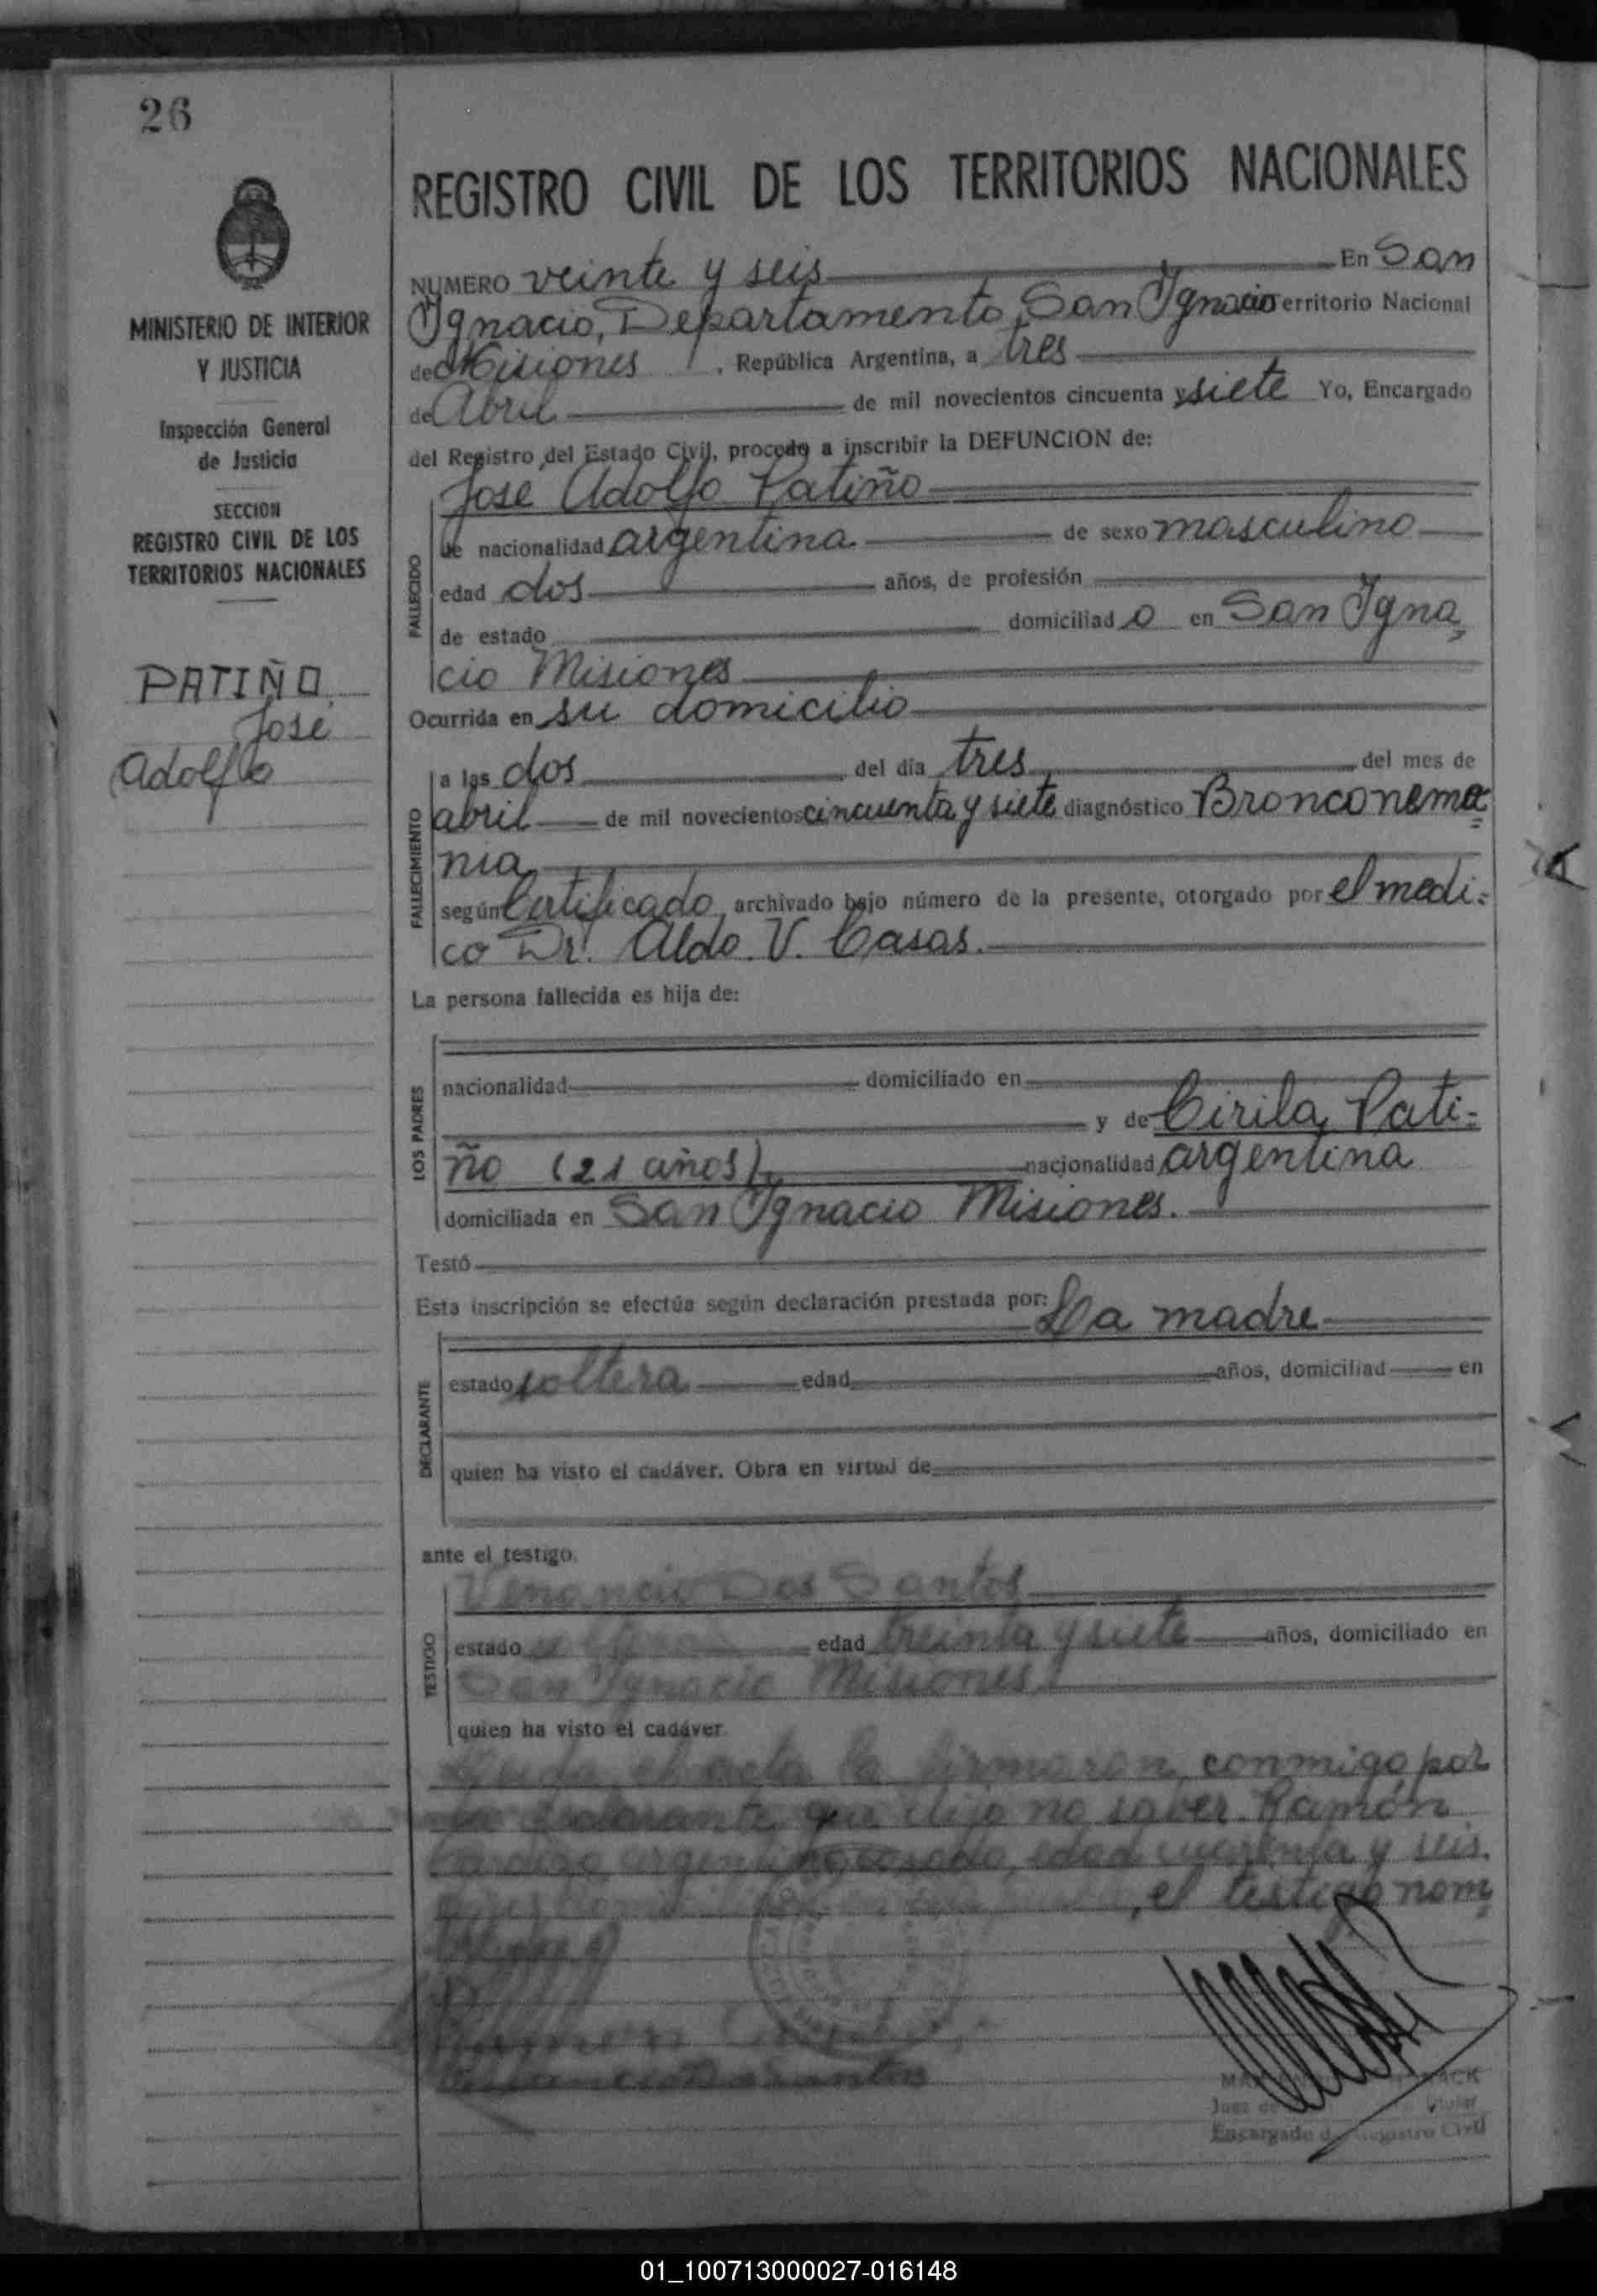 26
MINISTERIO DE INTERIOR
Y JUSTICIA
Inspección General
de Justicia
SECCION
REGISTRO CIVIL DE LOS
TERRITORIOS NACIONALES
PATIÑO
Jose
Adolfo
REGISTRO CIVIL DE LOS TERRITORIOS NACIONALES
NUMERO veinte y seis En San
Ignacio, Departamento San Ignacio Territorio Nacional
de Misiones, República Argentina, a tres
de Abril de mil novecientos cincuenta y siete Yo, Encargado
del Registro del Estado Civil, procedo a inscribir la DEFUNCION de:
Jose Adolfo Patiño
FALLECIDO
de nacionalidad argentina de sexo masculino
edad dos años, de profesión
de estado domiciliado en San Igna
cio Misiones
Ocurrida en su domicilio
FALLECIMIENTO
a las dos del día tres del mes de
abril de mil novecientos cincuenta y siete diagnóstico Bronconemo=
nia
según Certificado, archivado bajo número de la presente, otorgado por el medi=
co Dr. Aldo V. Casas.
La persona fallecida es hija de:
LOS PADRES
nacionalidad domiciliado en
y de Cirila Pati=
ño (21 años) nacionalidad argentina
domiciliada en San Ignacio Misiones.
Testó
Esta inscripción se efectúa según declaración prestada por: La madre
DECLARANTE
estado soltera edad años, domiciliad en
quien ha visto el cadáver. Obra en virtud de
ante el testigo
Venancio Dos Santos
TESTIGO
estado edad treinta y siete años, domiciliado en
San Ignacio Misiones
quien ha visto el cadáver
Leida el acta la firmaron, conmigo, por
la declarante que dijo no saber Ramón
Cardozo argentino, casado, edad cuarenta y seis
años, el testigo nom
Ramon
Venancio Dos Santos
Encargado del Registro Civil
01_100713000027-016148